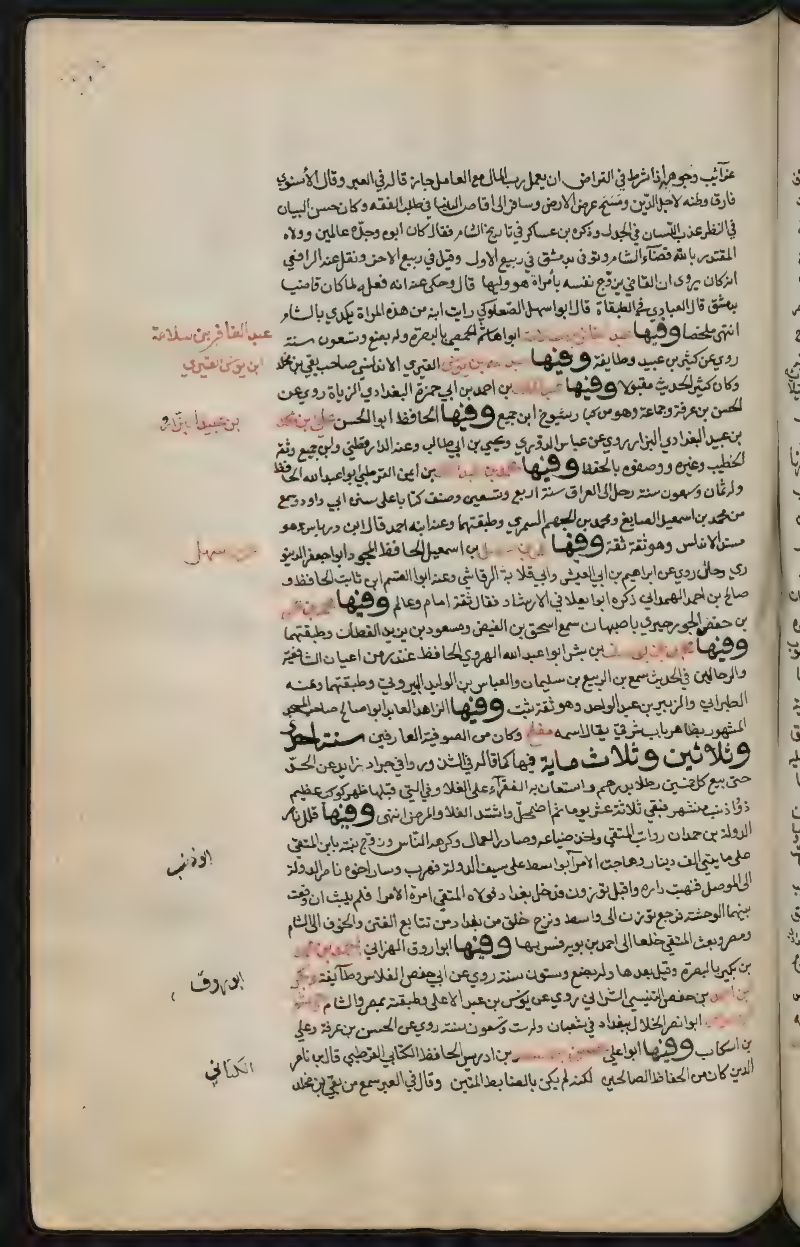 غرائب وجوهه اذا شرط في القراض ان يعمل رب المال مع العامل جاز قاله في العبر وقال الأسنوي
فارق وطنه لاجل الدين ومسح عرض الارض وسافر الى اقاصي الدنيا في طلب الفقه وكان حسن البيان
في النظر عذب اللسان في الجدل وذكره بن عساكر في تاريخ الشام فقال كان ابوه وجده عالمين وولاه
المقتدر بالله قضاء الشام وتوفى بدمشق في ربيع الاول وقيل في ربيع الاخر ونقل عنه الرافعي
انه كان يرى ان القاضي يزوج نفسه بأمراة هو وليها قال وحكى عنه انه فعله لما كان قاضيا
بدمشق قال العبادي في الطبقات قال ابو سهل الصعلوكي رايت ابنه من هذه المراة يكدي بالشام
انتهى ملخصا وفيها عبد الغافر بن سلامة ابو هاشم الحمصي بالبصرة وله بضع وتسعون سنة
روى عن كثير بن عبيد وطايفة وفيها عبد الله بن يونس القبري الاندلسي صاحب بقي بن مخلد
وكان كثير الحديث مقبولا وفيها عبد الملك بن احمد بن ابي حمزة البغدادي الزيات روى عن
الحسن بن عرفة وجماعة وهو من كبار شيوخ ابن جميع وفيها الحافظ ابو الحسن علي بن محمد
بن عبيد البغدادي البزار روى عن عباس الدوري ويحيى بن ابي طالب وعنه الدارقطني وابن جميع وثقه
الخطيب وغيره ووصفوه بالحفظ وفيها محمد بن عبد الملك بن ايمن القرطبي ابو عبد الله الحافظ
وله ثمان وسبعون سنة رحل الى العراق سنة اربع وتسعين وصنف كتابا على سنن ابي داود وسمع
من محمد بن اسمعيل الصايغ ومحمد بن الجهم السمري وطبقتهما وعنه ابنه احمد قال ابن درباس هو
مسند الاندلس وهو ثقة ثقة وفيها بن اسمعيل الحافظ المجود ابو جعفر الدينو
ري وحال روى عن ابراهيم بن ابي العيش وابي قلابة الرقاشي وعنه ابو القسم ابن ثابت الحافظ و
صالح بن احمد الهمداني ذكره ابو يعلا في الارشاد فقال ثقة امام وعالم وفيها محمد بن عمر
بن حفص الجورجيري باصبهان سمع اسحق بن الفيض ومسعود بن يزيد القطان وطبقتهما
وفيها محمد بن يوسف بن بشر ابو عبد الله الهروي الحافظ غندر من اعيان الشافعية
والرحالين في الحديث سمع بن الربيع بن سليمان والعباس بن الوليد البيروتي وطبقتهما وعنه
الطبراني والزبير بن عبد الواحد وهو ثقة ثبت وفيها الزاهد العابد ابو صالح صاحب المسجد
المشهور بظاهر باب شرقي يقال اسمه مفلح وكان من الصوفية العارفين سنة احدى
وثلاثين وثلاث ماية فيها كما قاله في الشذور وافى جراد زايد عن الحد
حتى بيع كل خمسين رطلا بدرهم واستعان به الفقراء على الغلاء وفي التي قبلها ظهر كوكب عظيم
ذو اذنب منتشر فبقي ثلاثة عشر يوما ثم اضمحل واشتد الغلا والمرض انتهى وفيها قلل ناصر
الدولة بن حمدان رواتب المتقي واخذ ضياعه وصادر العمال وكرهه الناس وزوج بنته بابن المتقي
على مايتي الف دينار وهاجت الامرآ بواسط على سيف الدولة فهرب وسار اخوه ناصر الدولة
الى الموصل فنهبت داره واقبل توزون فدخل بغداد فولاه المتقي امرة الامرا فلم يلبث ان وقعت
بينهما الوحشة فرجع توزن الى واسط ونزح خلق من بغداد من تتابع الفتن والخوف الى الشام
ومصر وبعث المتقي خلعا الى احمد بن بويه فسر بها وفيها ابو روق الهزاني احمد بن محمد
بن بكير بالبصرة وقيل بعدها وله بضع وستون سنة روى عن ابي حفص الفلاس وطائفة وبكر
بن احمد بن حفص التنيسي الشعراني روى عن يونس بن عبد الاعلى وطبقته بمصر والشام
ابو نصر الخلال ببغداد في شعبان ولد ست وتسعون سنة روى عن الحسن بن عرفة وعلي
بن اشكاب وفيها ابو علي بن ادريس الحافظ الكتاني القرطبي قال بن ناصر
الدين كان من الحفاظ الصالحين لكنه لم يكن بالضابط المتين وقال في العبر سمع من بقي بن مخلد
عبد الغافر بن سلامة
ابن يونس القبري
بن عبيد البزار
سهل
ابو ذنب
ابو روق
الكتاني